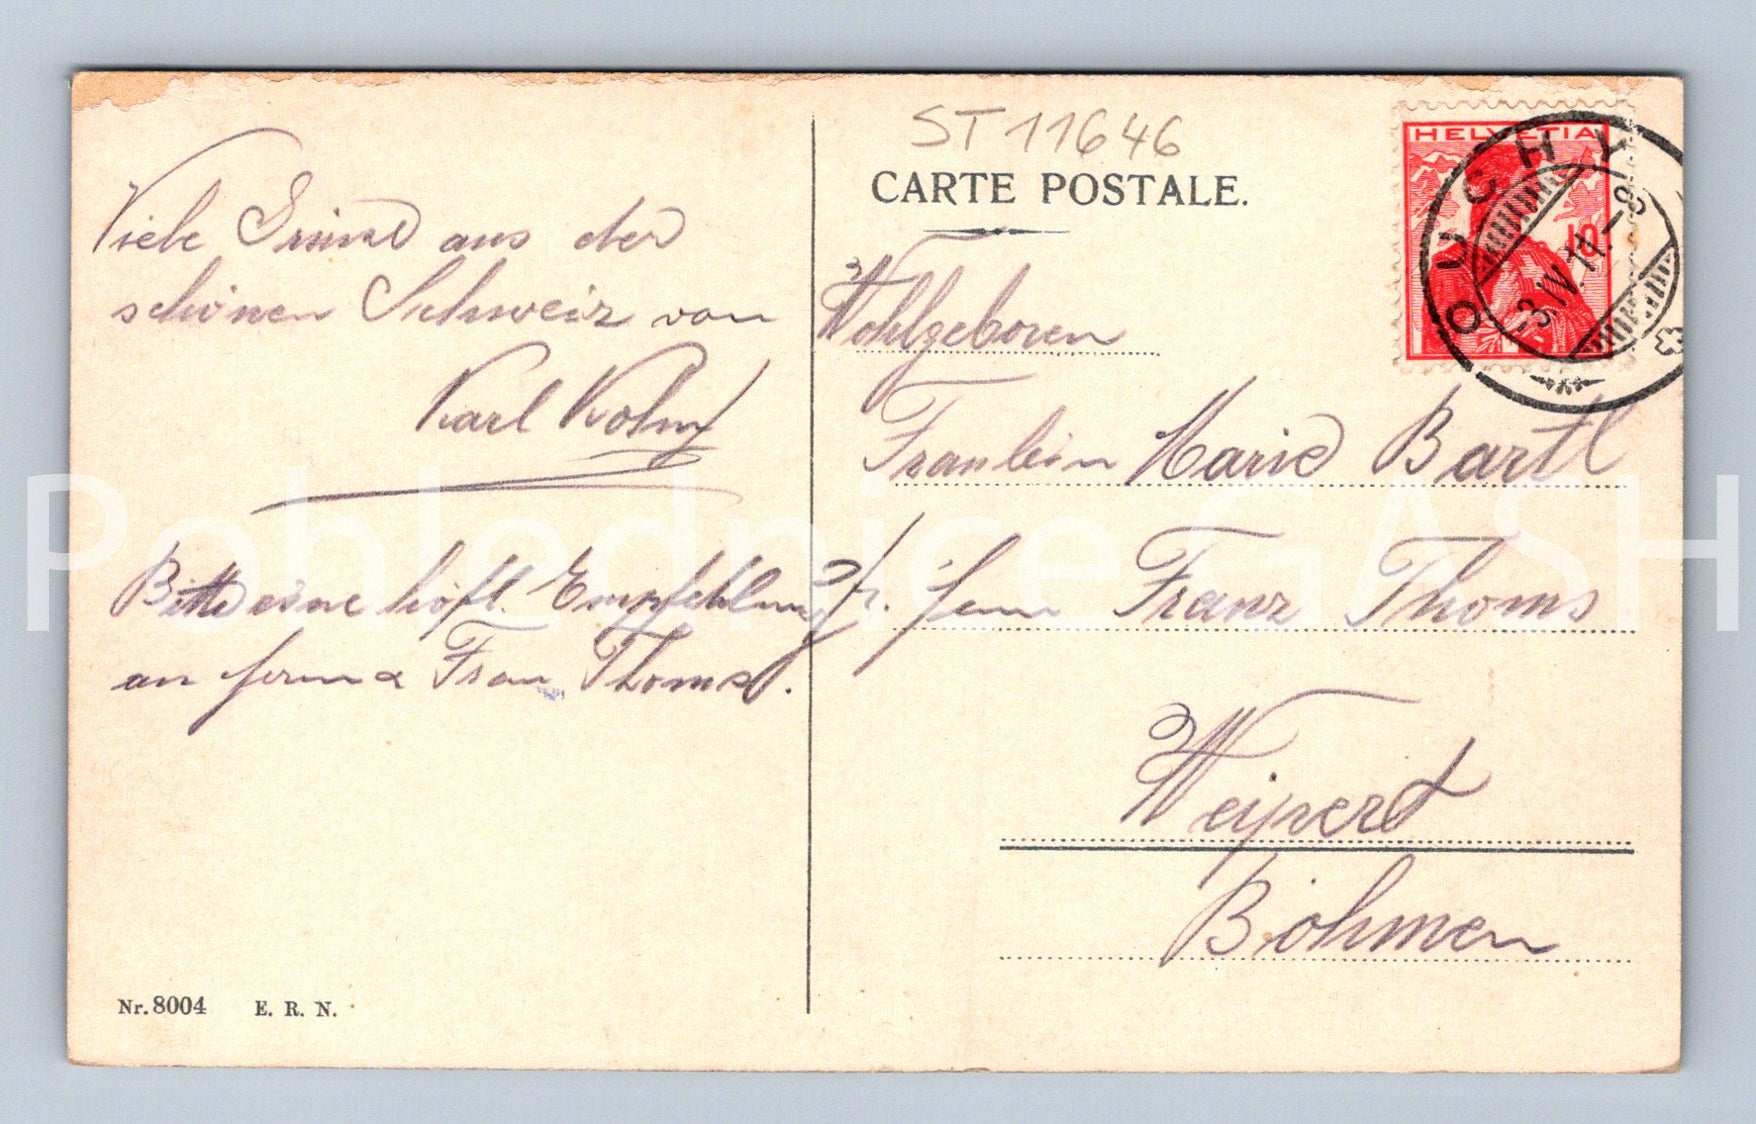 Viele Grüsse aus der
schönen Schweiz von
Karl Kohn
Bitte eine höfl. Empfehlung
an ferma Frau Thoms.
Nr. 8004 E. R. N.
ST 11646
CARTE POSTALE.
Wohlgeboren
Fraulein Marie Bartl
Franz Thoms
Weipert
Böhmen
HELVETIA
10
OUCHY
3.IV.11.-8
Pohlednice GASH